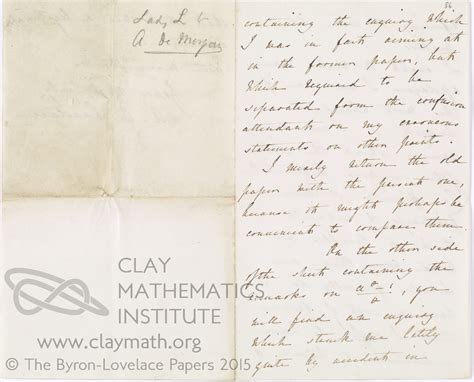 Lady L to
A. De Morgan
CLAY
MATHEMATICS
INSTITUTE
www.claymath.org
© The Byron-Lovelace Papers 2015
86
containing the enquiry which
I was in fact aiming at
in the former paper, but
which required to be
separated from the confusion
attendant on my erroneous
statements on other points.
I merely return the old
papers with the present one,
because it might perhaps be
convenient to compare them.
On the other side
of the sheet containing the
remarks on
, you
will find an enquiry
which struck me lately
quite by accident in